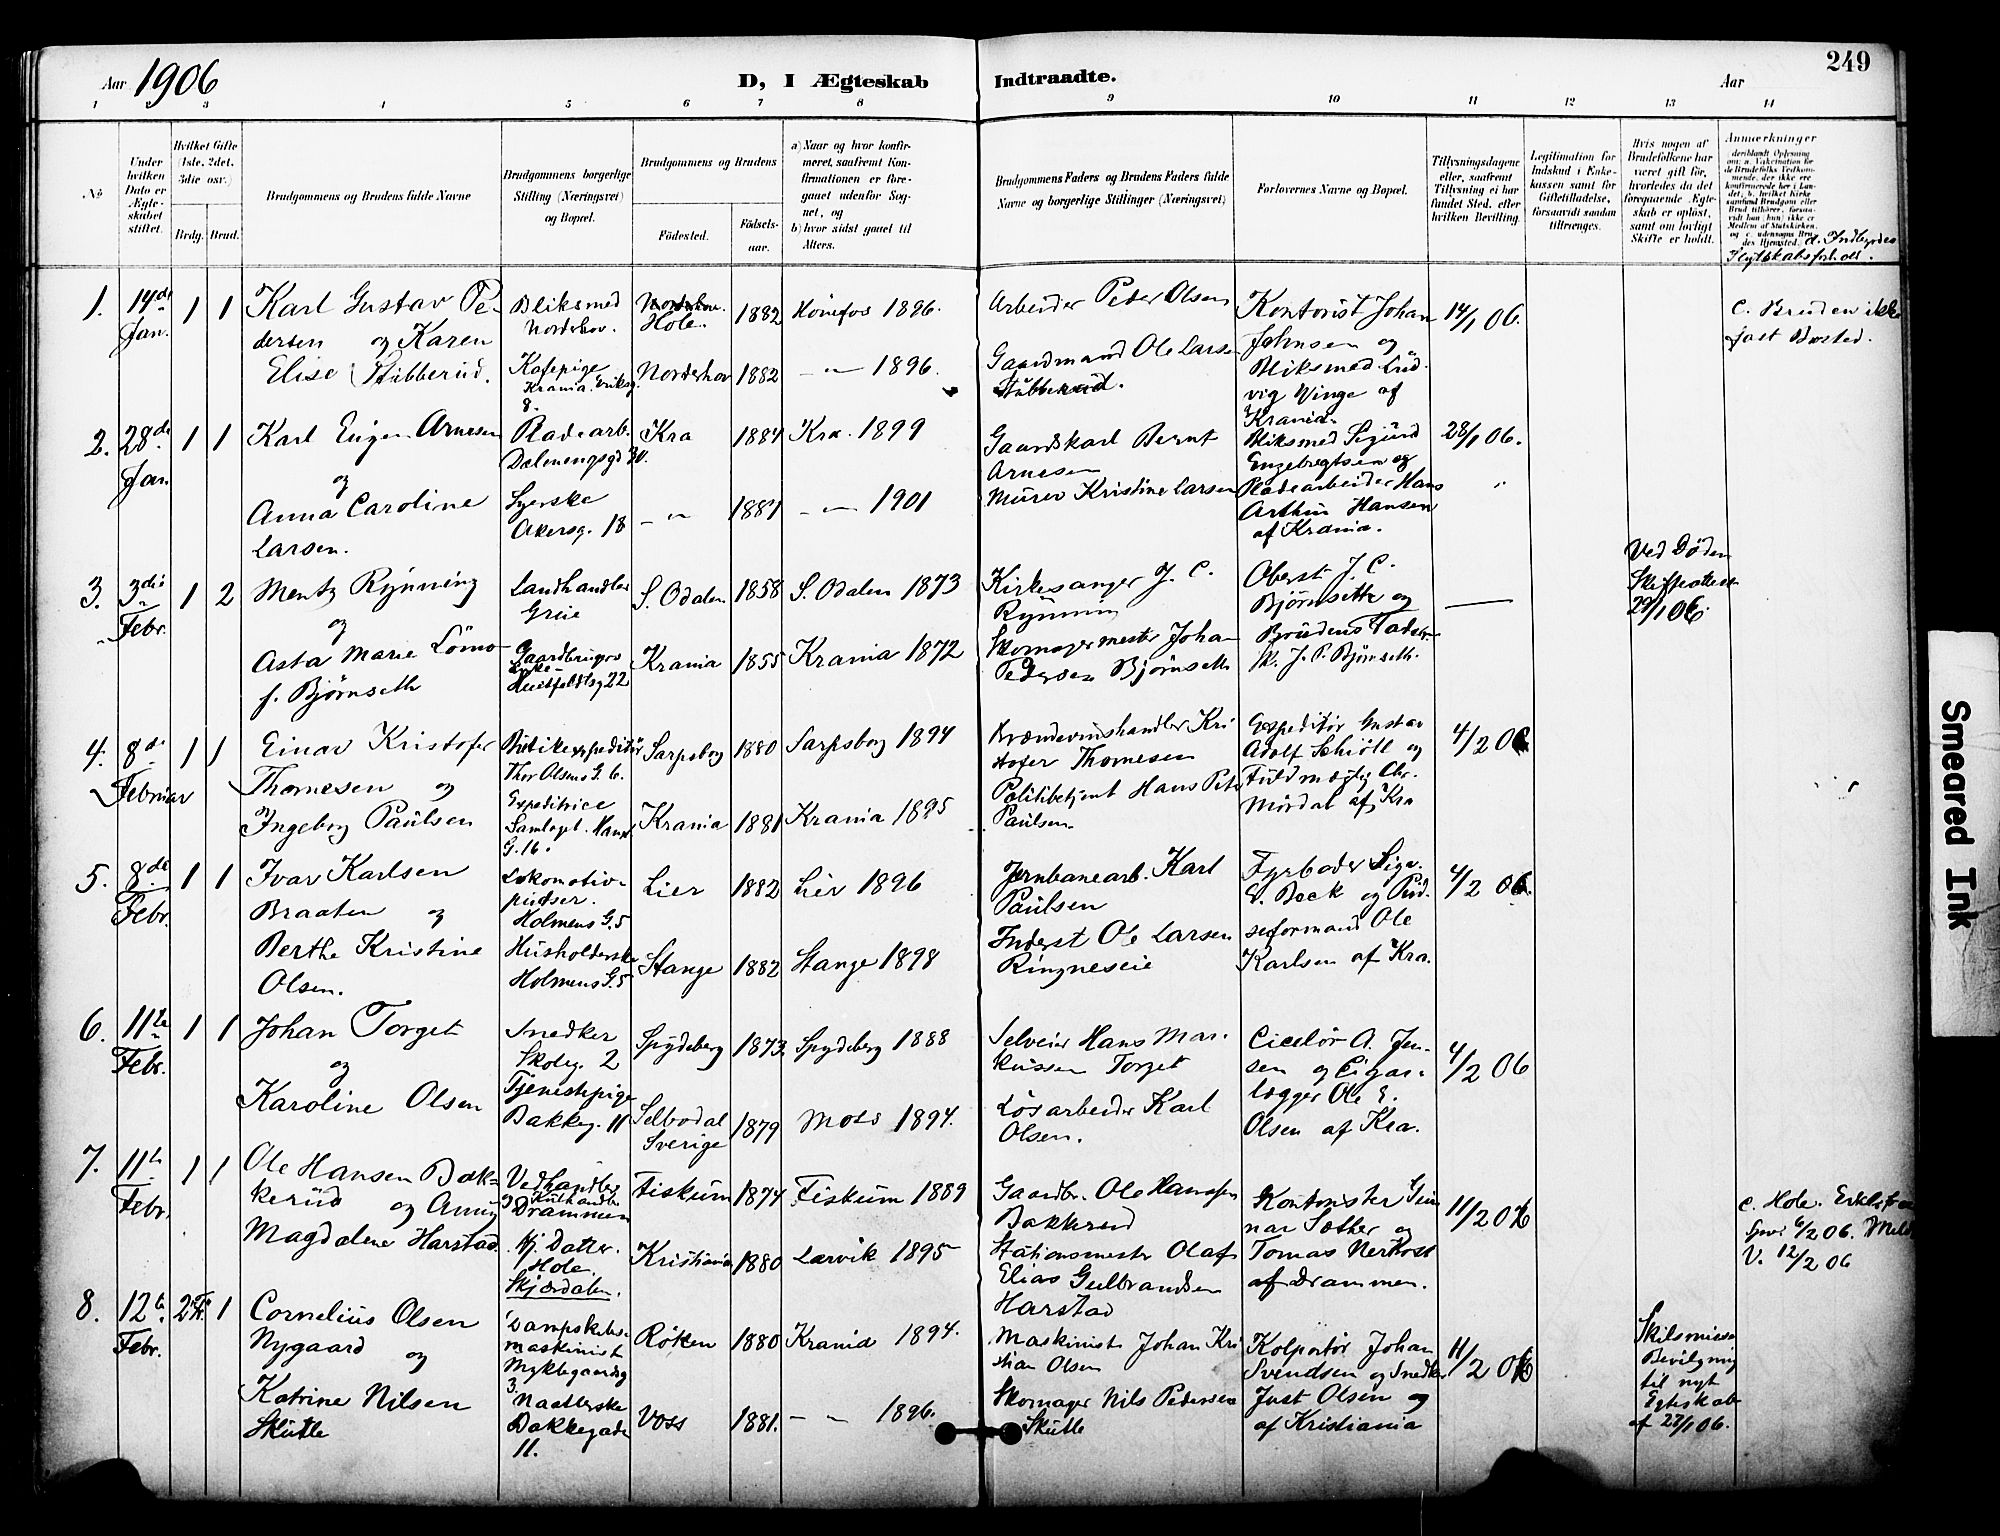 249
Aar 1906
D, I Ægteskab Indtraadte.
Aar
1 3 4 5 6 7 8 9 10 11 12 13 14
No
Under hvilken Dato er Ægteskabet stiftet.
Hvilket Gifte (1ste, 2det, 3die osv.)
Brdg. Brud.
Brudgommens og Brudens fulde Navne
Brudgommens borgerlige Stilling (Næringsvei) og Bopæl.
Brudgommens og Brudens
Fødested.
Fødselsaar.
a) Naar og hvor konfirmeret, saafremt Konfirmationen er foregaaet udenfor Sognet, og
b) hvor sidst gaaet til Alters.
Brudgommens Faders og Brudens Faders fulde Navne og borgerlige Stillinger (Næringsvei)
Forlovernes Navne og Bopæl.
Tillysningsdagene eller, saafremt Tillysning ei har fundet Sted, efter hvilken Bevilling.
Legitimation for Indskud i Enkekassen samt for Giftetilladelse, forsaavidt saadan tiltrænges.
Hvis nogen af Brudefolkene har været gift før, hvorledes da det foregaaende Ægteskab er opløst, samt om lovligt Skifte er holdt.
Anmærkninger
d. Indbyrdes Slegtskabsforhold.
1. 14de Jan. 1 1
Karl Gustav Pedersen og Karen
Elise Stubberud.
Bliksmed
Norderhov.
Kafepige
Krania. Eriksg.
8.
Norderhov.
Hole. 1882
Hønefos 1896.
Norderhov 1882 — " — 1896.
Arbeider Peder Olsen
Gaardmand Ole Larsen
Stubberud.
Kontorist Johan
Johnsen og
Bliksmed Ludvig Vinge af
Krania.
14/1 06.
c. Bruden ikke
fast Bosted.
2. 28de Jan. 1 1
Karl Eugen Arnesen
og
Anna Caroline
Larsen.
Pladearb.
Dælenenggd 30.
Syerske
Akersg. 18
Kra 1884 Kra. 1899
— " — 1881 — " — 1901
Gaardskarl Bernt
Arnesen
Murer Kristine Larsen
Bliksmed Sigurd
Engebregtsen og
Pladearbeider Hans
Arthur Hansen
af Krania.
28/1 06.
"
3. 3die Febr. 1 2
Mentz Rynning
og
Asta Marie Lömo
f. Bjørnseth
Landhandler
Grue
Gaardbruger
Enke
Huitfeldtsg 22
S. Odalen 1858 S. Odalen 1873
Krania 1855 Krania 1872
Kirkesanger J. C.
Rynning
Skomagermester Johan
Pedersen Bjørnseth
Oberst J. C.
Bjørnseth og
Brudens Fader
Sk. J. P. Bjørnseth.
—
Ved Døden
Skifteattest
29/1 06.
4. 8de Februar 1 1
Einar Kristofer
Thomesen og
Ingeborg Paulsen
Butikexpeditør
Thor Olsens G. 6.
Expeditrice
Samlaget. Hamd
G. 16.
Sarpsborg 1880 Sarpsborg 1894
Krania 1881 Krania 1895
Brændevinshandler Kristofer Thomesen
Politibetjent Hans Peter
Paulsen.
Expeditør Gustav
Adolf Schiøtt og
Fuldmægtig Chr.
Mørdal af Kra
4/2 06
5. 8de Febr. 1 1
Ivar Karlsen
Braaten og
Berthe Kristine
Olsen.
Lokomotivpudser.
Holmens G. 5
Husholderske
Holmens G. 5
Lier 1882 Lier 1896
Stange 1882 Stange 1898
Jernbanearb. Karl
Paulsen
Inderst Ole Larsen
Ringneseie
Fyrbøder Sigv.
E. Beck og Pudseformand Ole
Karlsen af Kra.
4/2 06.
6. 11te Febr. 1 1
Johan Torget
og
Karoline Olsen
Snedker
Skoleg. 2
Tjenestepige
Bakkeg. 11
Spydeberg 1873. Spydeberg 1888
Selbodal
Sverige 1879 Moss 1894.
Selveier Hans Markussen Torget
Løsarbeider Karl
Olsen.
Ciselør A. Jensen og Cigarlægger Ole E.
Olsen af Kra.
4/2 06
7. 11te Febr. 1 1
Ole Hansen Bakkerud og Anny
Magdalene Harstad.
Vedhandler
Kulhandler
Drammen
Hj. Datter.
Hole.
Skjærdalen.
Fiskum 1874 Fiskum 1889
Kristiania 1880 Larvik 1895
Gaardbr. Ole Hansen
Bakkerud
Stationsmester Olaf
Elias Gulbrandsen
Harstad
Kontorister Gunnar Sæther og
Tomas Nerkost
af Drammen.
11/2 06
c. Hole.
6/2 06. Meld
V. 12/2 06
8. 12te Febr. 2 Fr. 1
Cornelius Olsen
Nygaard og
Katrine Nilsen
Skutle
Dampskibsmaskinist
Nyklegaardsg
3.
Naatlerske
Bakkegade
11.
Røken 1880 Krania 1894.
Voss 1881. — " — 1896.
Maskinist Johan Kristian Olsen
Skomager Nils Pedersen
Skutle
Kolportør Johan
Svendsen og Snedker
Just Olsen og
af Kristiania
11/2 06
Skilsmisse
Bevilgning
til nyt
Egteskab
af 27/1 06.
Smeared Ink